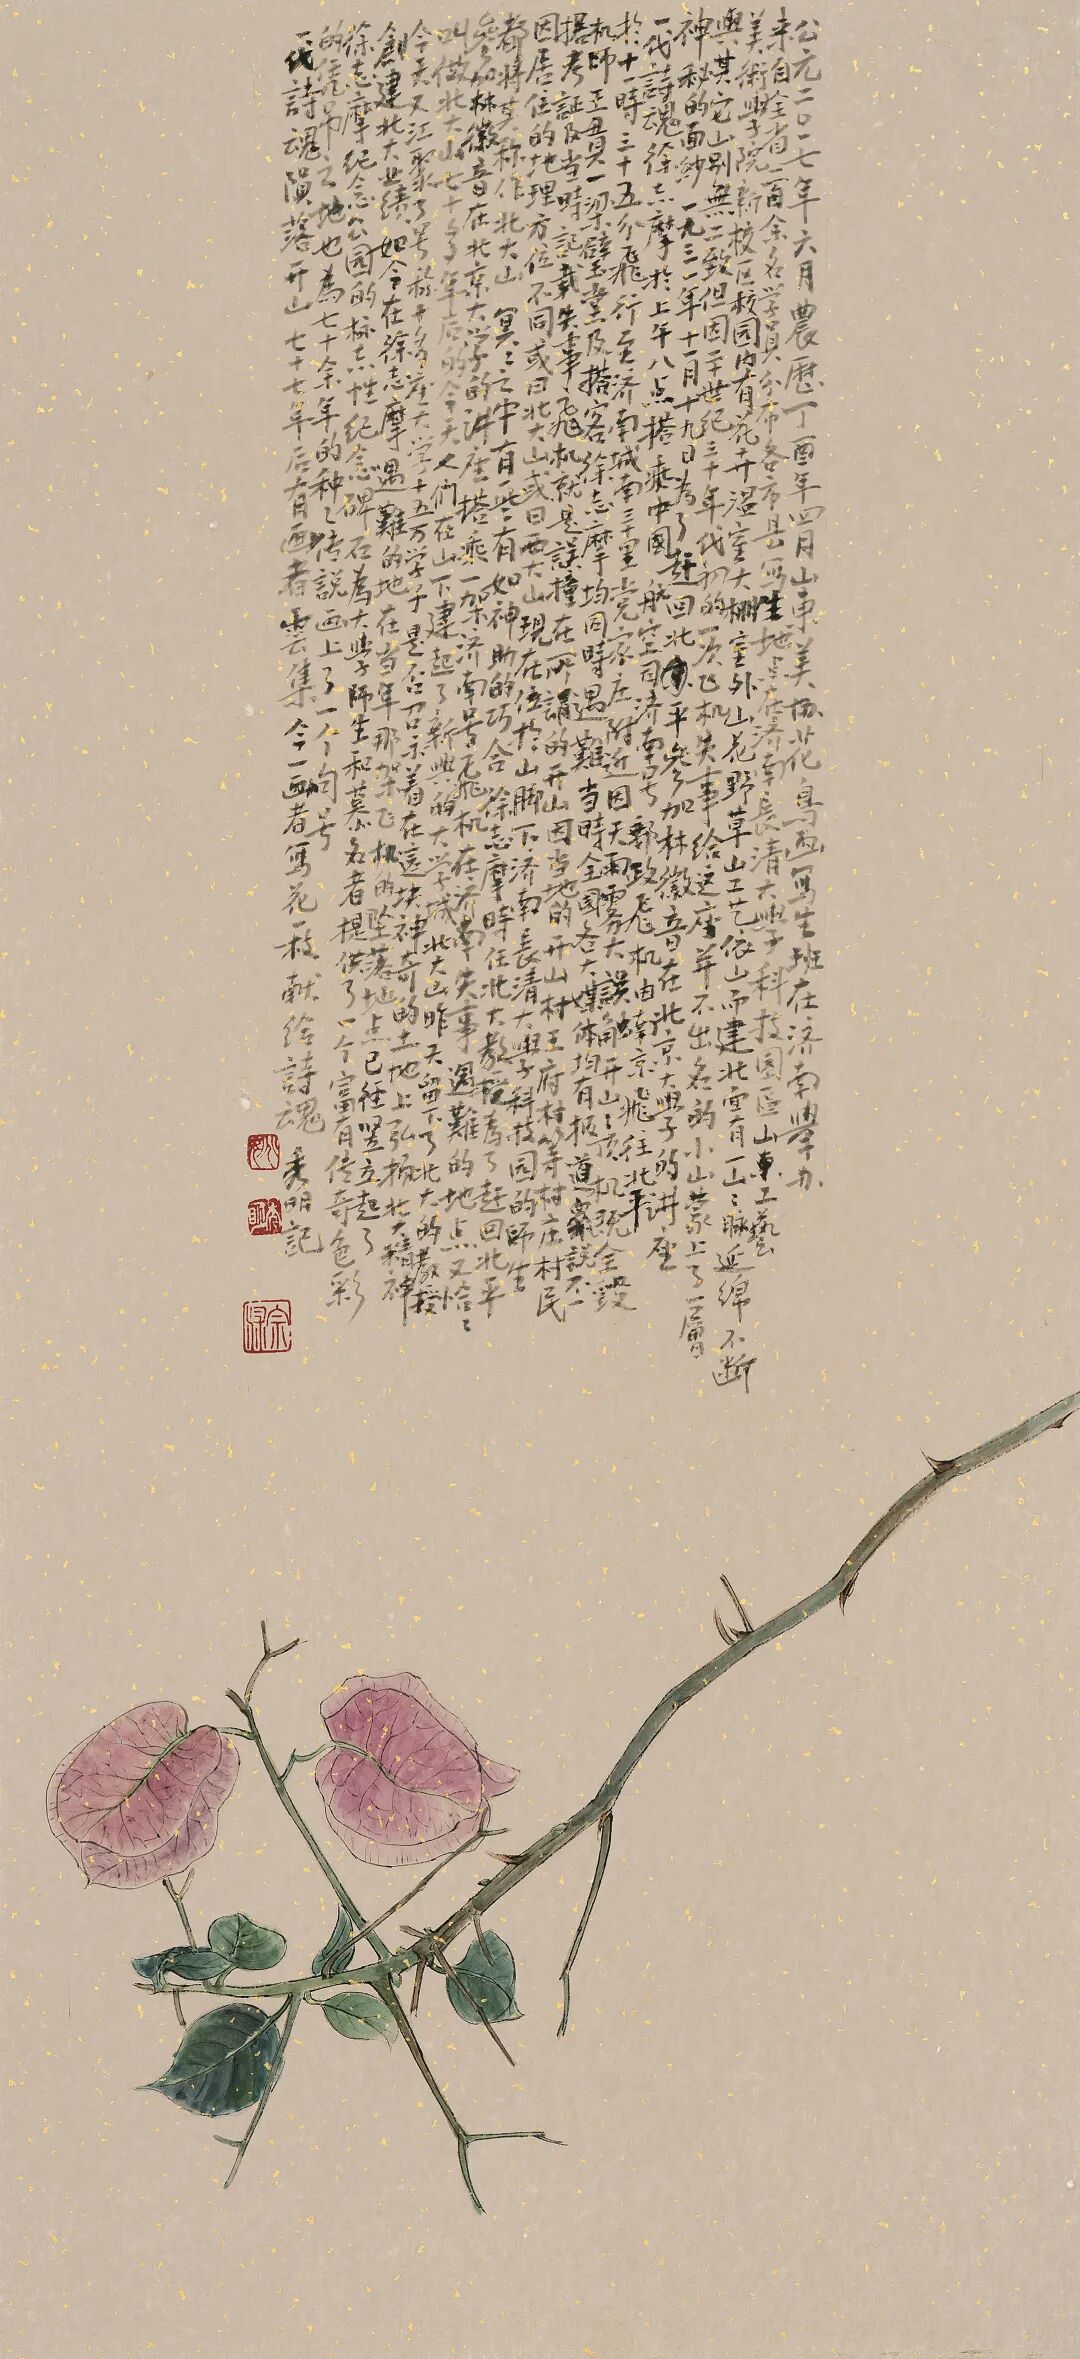 公元二〇一七年六月農歷丁酉年四月山東美协花鳥画寫生班在济南舉办
来自全省一百余名学員分布各市县寫生地点在济南長清大學科技園区山東工藝
美術學院新校区校园内有花卉溫室大棚室外山花野草山工艺依山而建北面有一山山脉延绵不断
與其它山别無二致但因二十世纪三十年代初的一次飞机失事给这座并不出名的小山蒙上了一層
神秘的面紗一九三一年十一月十九日為了赶回北平參加林徽音在北京大學的讲座
一代詩魂徐志摩於上午八点搭乘中國航空司济南号郵政飞机由南京飛往北平
於十一時三十五分飛行至济南城南三十里党家庄附近因天雨雾大误触開山山顶机既全毁
机師王貫一梁壁堂及搭客徐志摩均同時遇難當時全國各大媒体均有报道衆説不一
据考証及当時記載失事飛机就是誤撞在所謂的开山因当地的开山村王府村等村庄村民
因居住的地理方位不同或曰北大山或曰西大山現在位於山脚下济南長清大學科技园的師生
都將其称作北大山冥冥之中有一些有如神助的巧合徐志摩時任北大教授為了赶回北平
參加林徽音在北京大学的讲座搭乘一架济南号飛机在济南失事遇難的地点又恰恰
叫做北大山七十多年后的今天人们在山下建起了新興的大学城北大山昨天留下了北大的教授
今天又江聚了号称十多座大学十五万学子是否召示着在這块神奇的土地上弘扬北大精神
創建北大业绩如今在徐志摩遇難的地在当年那架飞机的坠落地点已往竖立起了
徐志摩纪念公园的标志性纪念碑石為大學師生和慕名者提供了一个富有传奇色彩
的凭吊之地也為七十余年的种种传説画上了一个句号
一代詩魂隕落开山七十七年后有画者雲集今一画者寫花一枝献给詩魂 秀明記